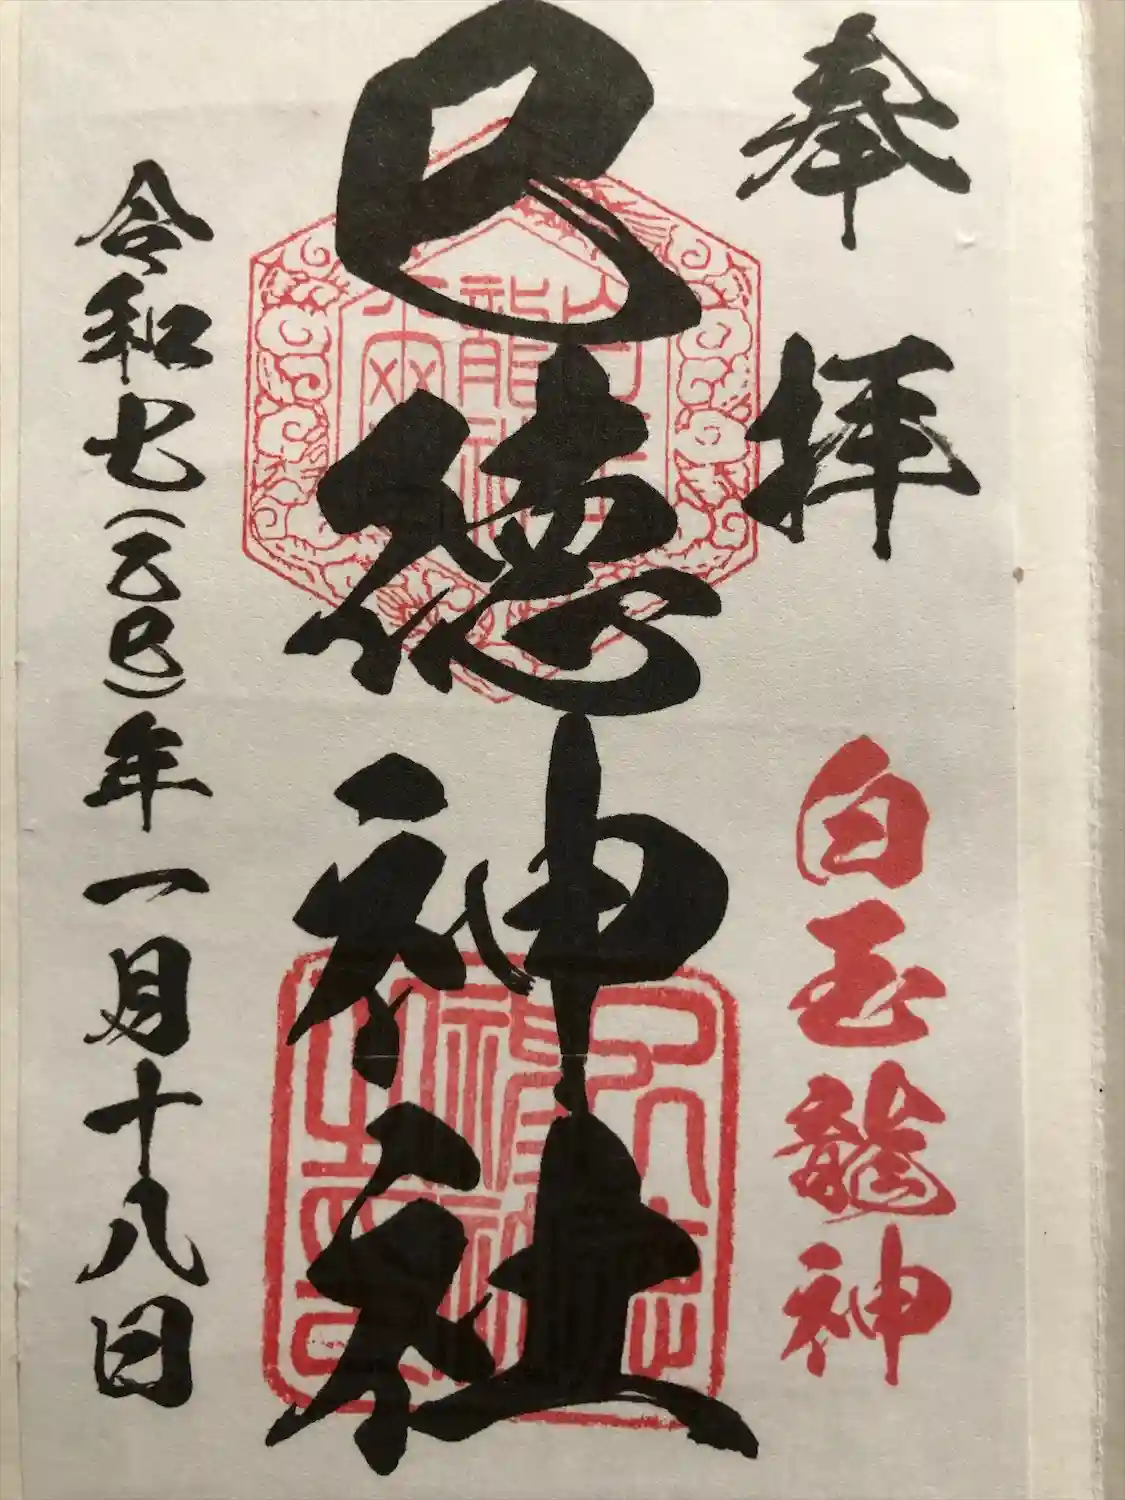 奉拝
白玉龍神
巳德神社
令和七(乙巳)年一月十八日